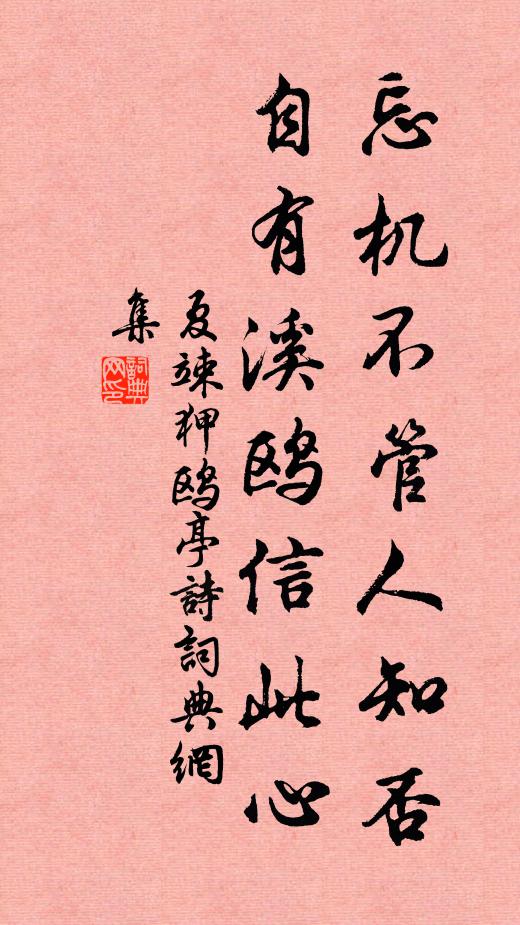 忘机不管人知否
自有溪鸥信此心
夏竦狎鸥亭詩詞典網
集
詞典
网印